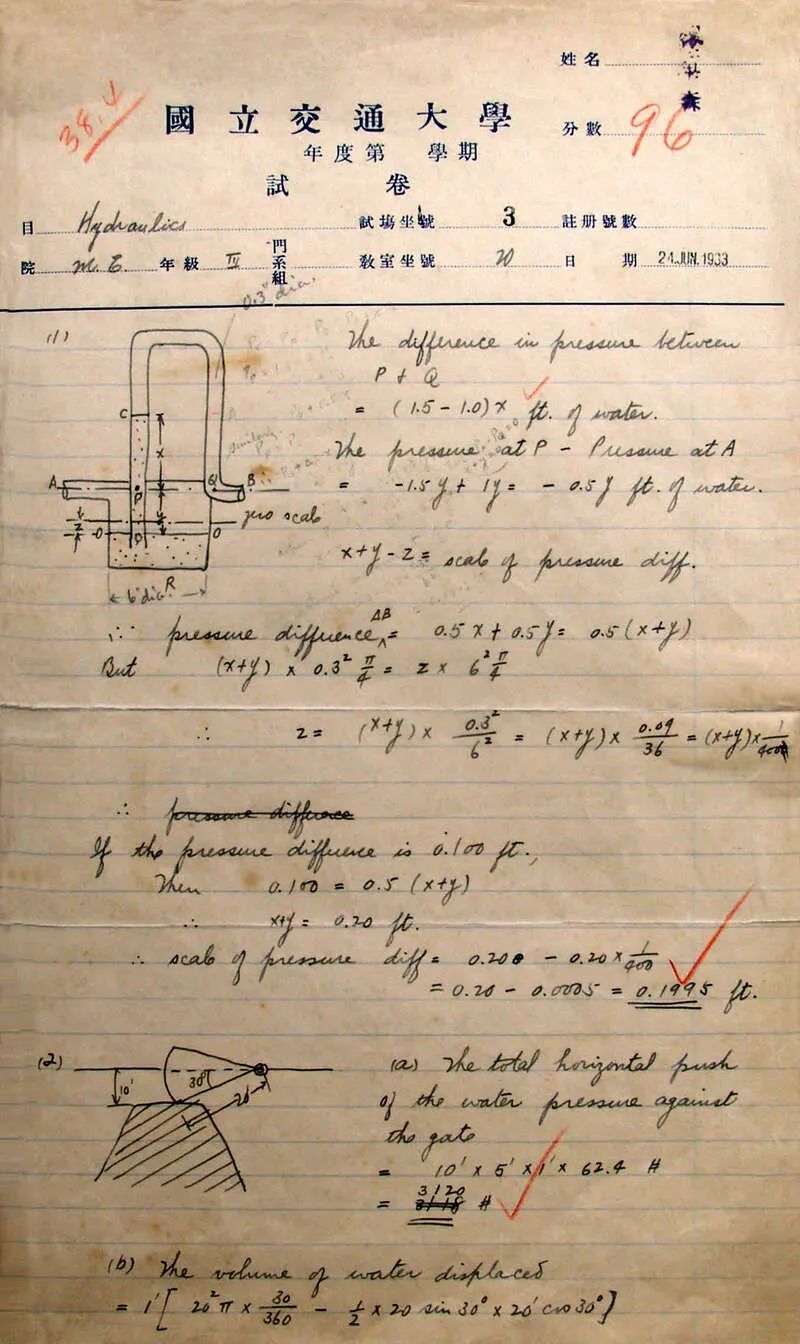 姓名
38.
國立交通大學
分數 96
年度第 學期
試 卷
目 Hydraulics 試場坐號 3 註册號數
院 M.E. 年級 III 門系組 教室坐號 20 日期 24.JUN.1933
0.3" dia.
(1) The difference in pressure between
P + Q
= (1.5 - 1.0)x ft. of water.
C
x
The pressure at P - Pressure at A
A P Q B
= -1.5y + 1y = - 0.5y ft. of water.
zero scale
O O
x+y-z = scale of pressure diff.
6" dia. R
∵ pressure difference AB = 0.5x + 0.5y = 0.5(x+y)
But (x+y) x 0.3² π/4 = z x 6² π/4
∴ z = (x+y) x 0.3²/6² = (x+y) x 0.09/36 = (x+y) x 1/400
∴ pressure difference
If the pressure difference is 0.100 ft.,
Then 0.100 = 0.5 (x+y)
∴ x+y = 0.20 ft.
∴ scale of pressure diff = 0.200 - 0.20 x 1/400
= 0.20 - 0.0005 = 0.1995 ft.
(2) 10' 30° 20'
(a) The total horizontal push
of the water pressure against
the gate
= 10' x 5' x 1' x 62.4 #
= 3120 #
(b) The volume of water displaced
= 1'[ 20²π x 30/360 - 1/2 x 20 sin 30° x 20' cos 30°]